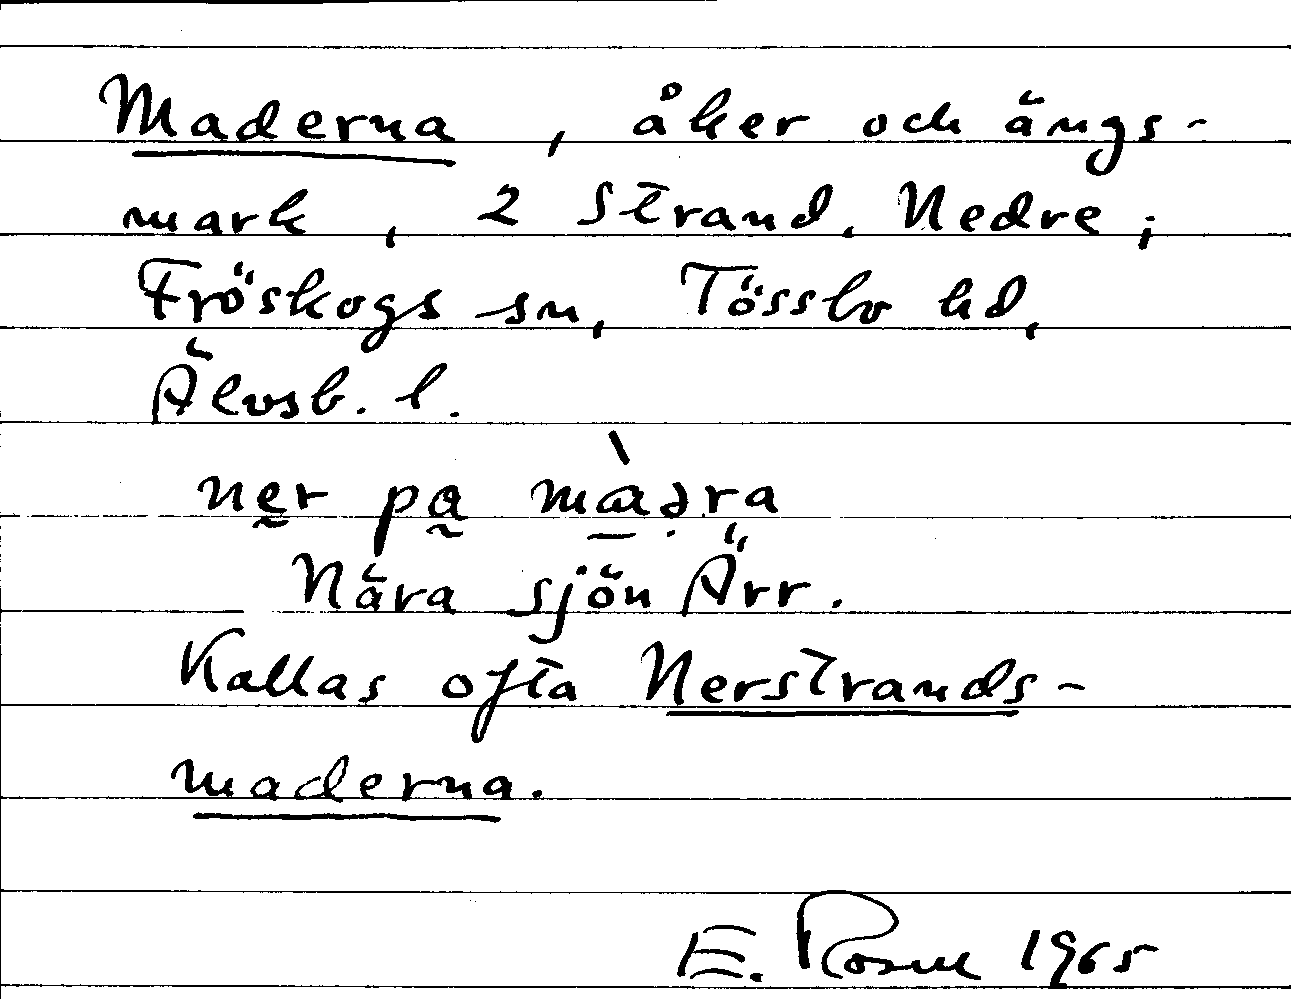 Maderna, åker och ängs-
mark, 2 Strand, Nedre;
Fröskogs sn, Tössbo hd,
Älvsb. l.
ner pa màəra
Nära sjön Ärr.
Kallas ofta Nerstrands-
maderna.
E. Rosell 1965